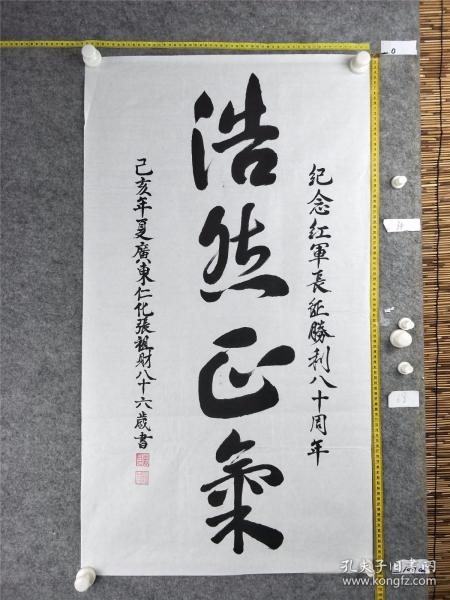 紀念红軍長征勝利八十周年
浩然正氣
己亥年夏廣東仁化張祖財八十六歲書
孔夫子旧书网
www.kongfz.com